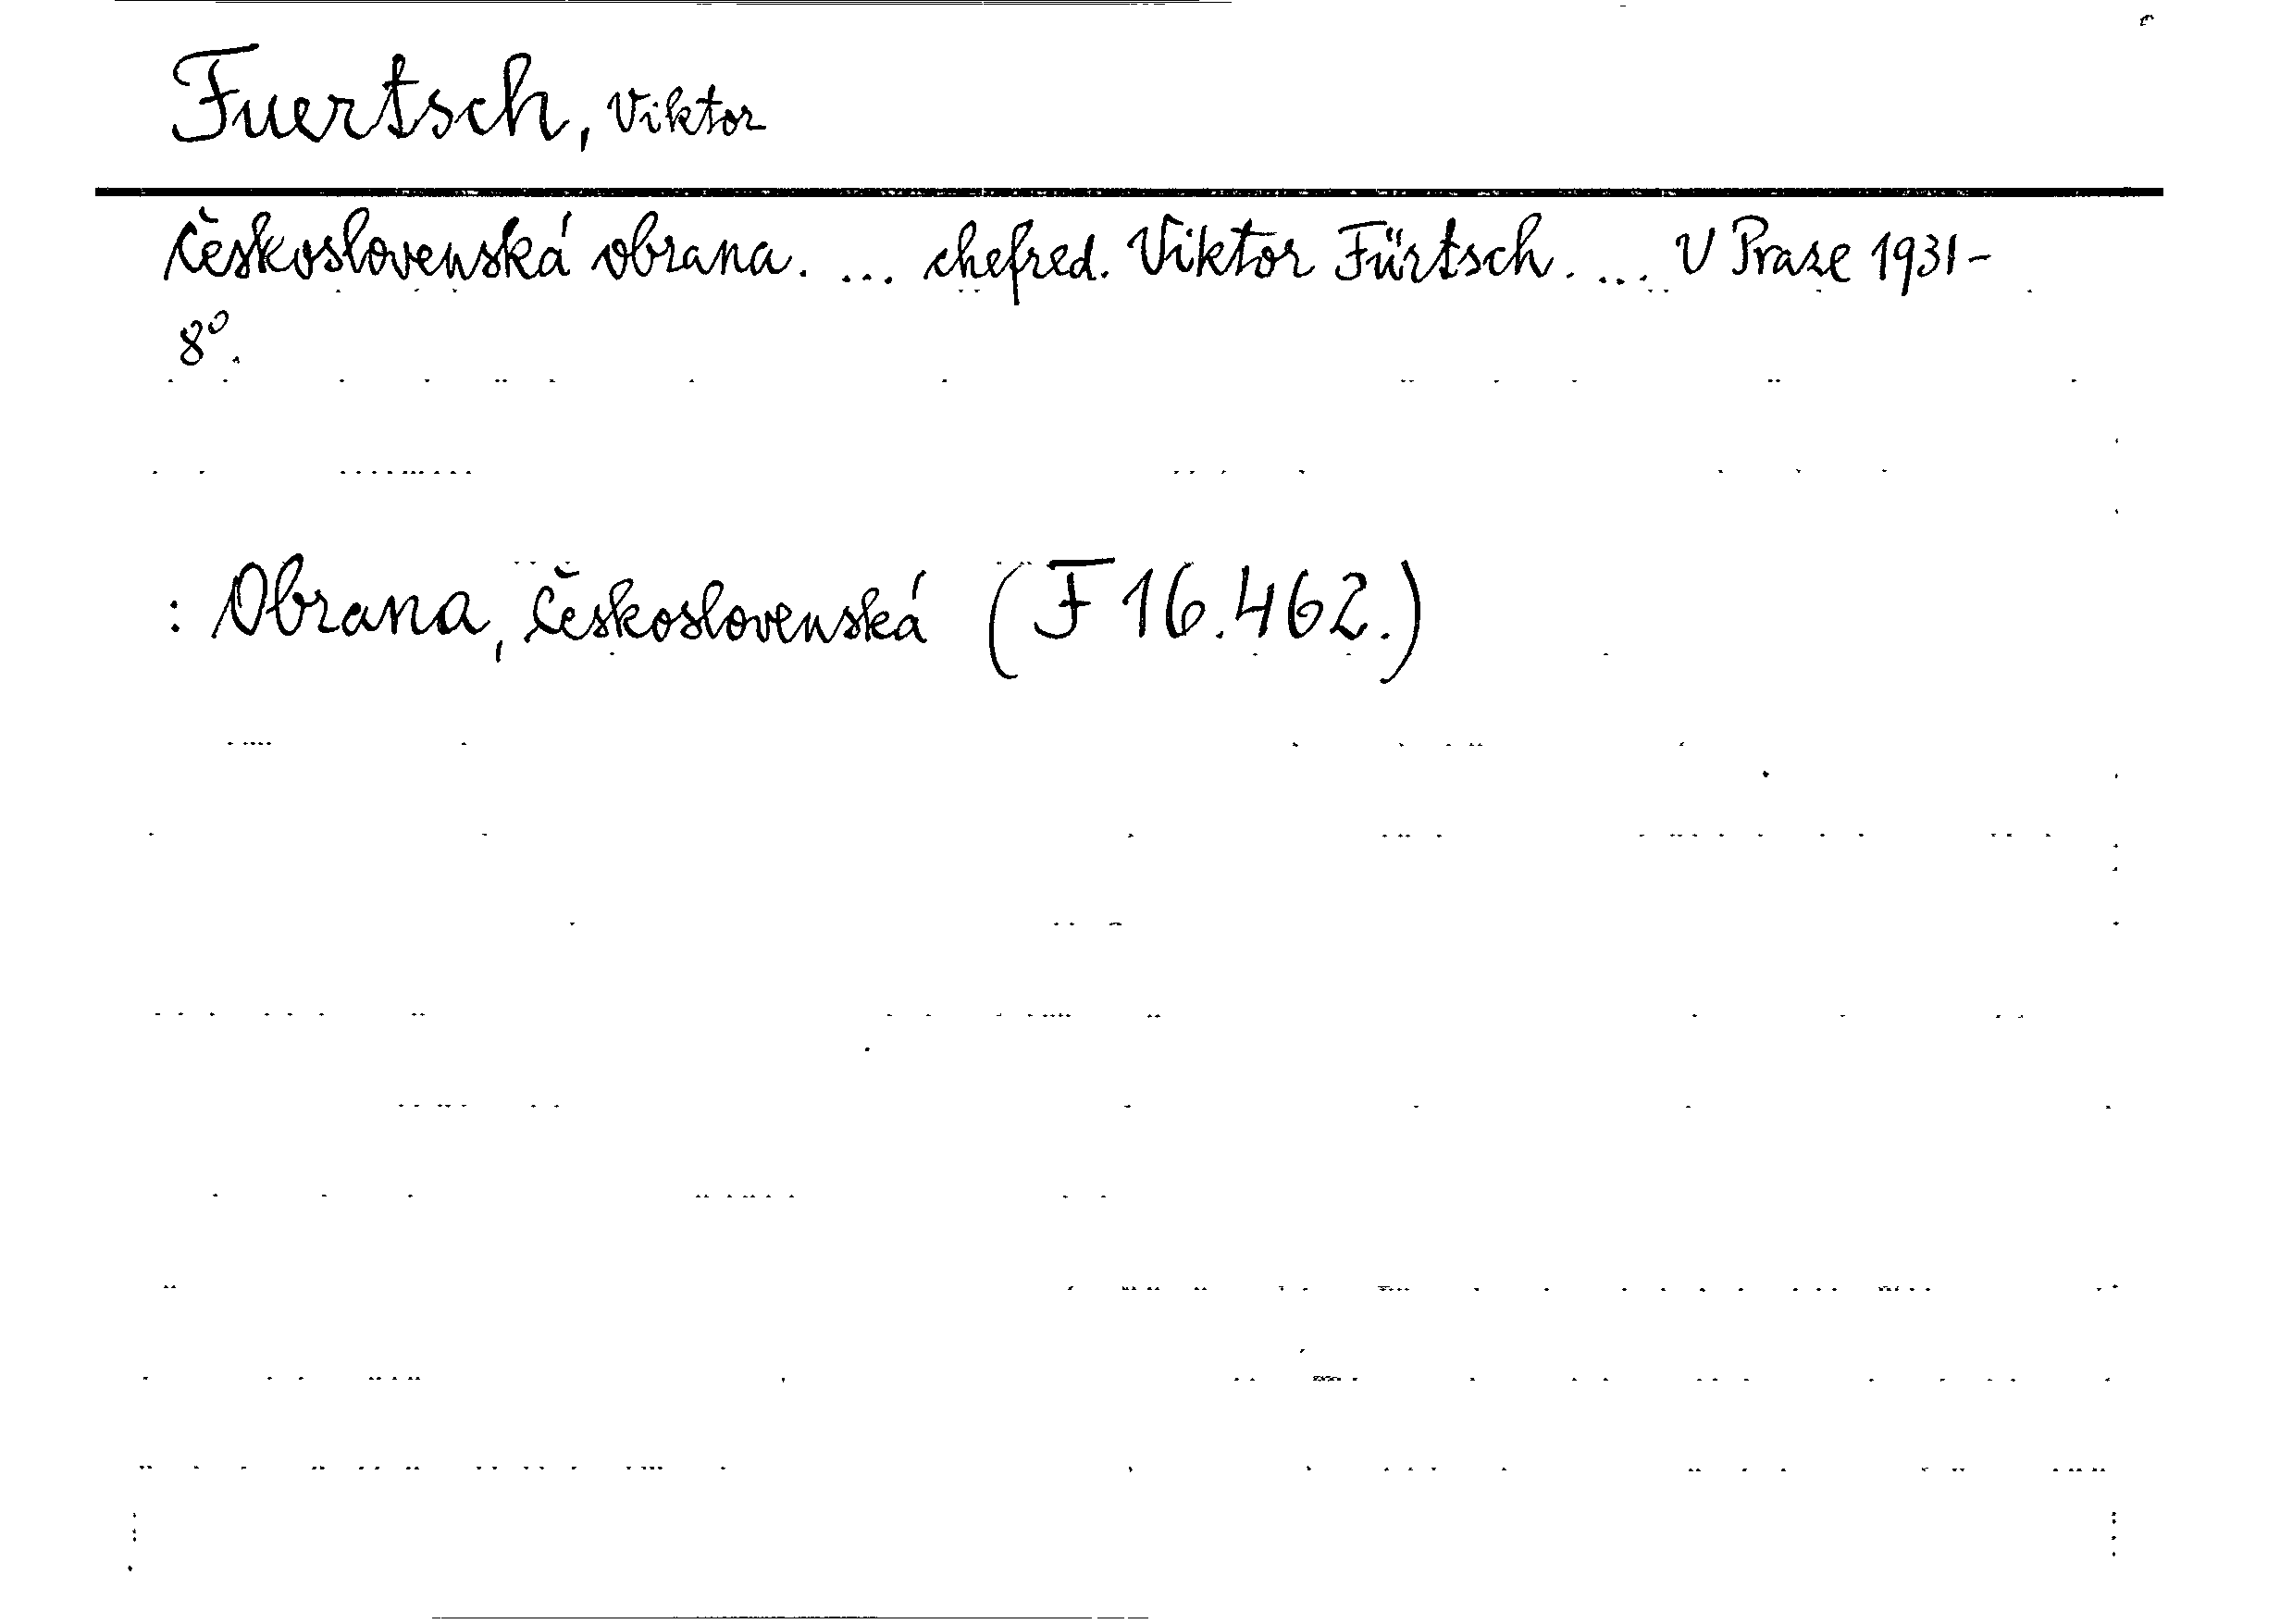 Fuertsch, Viktor
Československá obrana. ... chefred. Viktor Fürtsch. ... V Praze 1931-
8°.
: Obrana, Československá (F 16.462.)